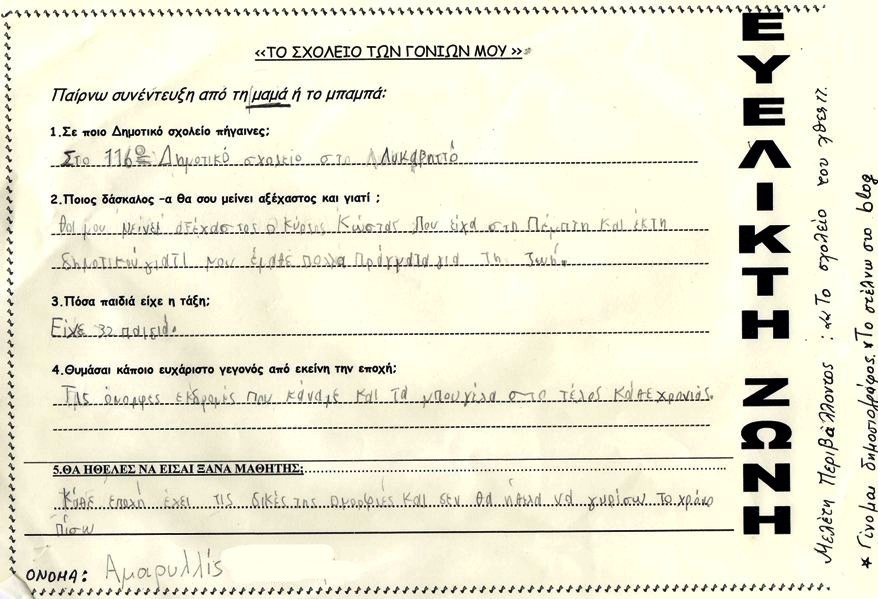 «ΤΟ ΣΧΟΛΕΙΟ ΤΩΝ ΓΟΝΙΩΝ ΜΟΥ »
Παίρνω συνέντευξη από τη μαμά ή το μπαμπά:
1.Σε ποιο Δημοτικό σχολείο πήγαινες;
Στο 116ο Δημοτικό σχολείο στο Λυκαβηττό
2.Ποιος δάσκαλος -α θα σου μείνει αξέχαστος και γιατί ;
θα μου μείνει αξέχαστος ο Κύριος Κώστας που είχα στη Πέμπτη και έκτη
δημοτικού γιατί μου έμαθε πολλά πράγματα για τη ζωή.
3.Πόσα παιδιά είχε η τάξη;
Είχε 32 παιδιά.
4.Θυμάσαι κάποιο ευχάριστο γεγονός από εκείνη την εποχή;
Τις όμορφες εκδρομές που κάναμε και τα μπουγέλα στο τέλος κάθε χρονιάς.
5.ΘΑ ΗΘΕΛΕΣ ΝΑ ΕΙΣΑΙ ΞΑΝΑ ΜΑΘΗΤΗΣ;
Κάθε εποχή έχει τις δικές της ομορφιές και δεν θα ήθελα να γυρίσω το χρόνο
πίσω
ΟΝΟΜΑ: Αμαρυλλίς
ΕΥΕΛΙΚΤΗ ΖΩΝΗ
Μελέτη Περιβάλλοντος : «Το σχολείο του χθες»
* Γίνομαι δημοσιογράφος. * Το στέλνω στο blog